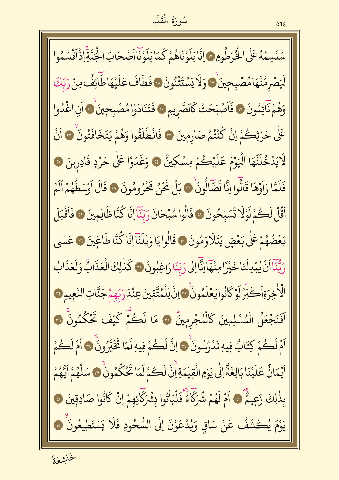 سُورَةُ الْقَلَمِ
سَنَسِمُهُ عَلَى الْخُرْطُومِ ۝ اِنَّا بَلَوْنَاهُمْ كَمَا بَلَوْنَٓا اَصْحَابَ الْجَنَّةِۚ اِذْ اَقْسَمُوا
لَيَصْرِمُنَّهَا مُصْبِح۪ينَۙ ۝ وَلَا يَسْتَثْنُونَ ۝ فَطَافَ عَلَيْهَا طَٓائِفٌ مِنْ رَبِّكَ
وَهُمْ نَٓائِمُونَ ۝ فَاَصْبَحَتْ كَالصَّر۪يمِۙ ۝ فَتَنَادَوْا مُصْبِح۪ينَۙ ۝ اَنِ اغْدُوا
عَلٰى حَرْثِكُمْ اِنْ كُنْتُمْ صَارِم۪ينَ ۝ فَانْطَلَقُوا وَهُمْ يَتَخَافَتُونَۙ ۝ اَنْ
لَا يَدْخُلَنَّهَا الْيَوْمَ عَلَيْكُمْ مِسْك۪ينٌ ۝ وَغَدَوْا عَلٰى حَرْدٍ قَادِر۪ينَ ۝
فَلَمَّا رَاَوْهَا قَالُٓوا اِنَّا لَضَٓالُّونَۙ ۝ بَلْ نَحْنُ مَحْرُومُونَ ۝ قَالَ اَوْسَطُهُمْ اَلَمْ
اَقُلْ لَكُمْ لَوْلَا تُسَبِّحُونَ ۝ قَالُوا سُبْحَانَ رَبِّنَٓا اِنَّا كُنَّا ظَالِم۪ينَ ۝ فَاَقْبَلَ
بَعْضُهُمْ عَلٰى بَعْضٍ يَتَلَاوَمُونَ ۝ قَالُوا يَا وَيْلَنَٓا اِنَّا كُنَّا طَاغ۪ينَ ۝ عَسٰى
رَبُّنَٓا اَنْ يُبْدِلَنَا خَيْرًا مِنْهَٓا اِنَّٓا اِلٰى رَبِّنَا رَاغِبُونَ ۝ كَذٰلِكَ الْعَذَابُۜ وَلَعَذَابُ
الْاٰخِرَةِ اَكْبَرُۢ لَوْ كَانُوا يَعْلَمُونَ۟ ۝ اِنَّ لِلْمُتَّق۪ينَ عِنْدَ رَبِّهِمْ جَنَّاتِ النَّع۪يمِ ۝
اَفَنَجْعَلُ الْمُسْلِم۪ينَ كَالْمُجْرِم۪ينَۜ ۝ مَا لَكُمْ۠ كَيْفَ تَحْكُمُونَۚ ۝
اَمْ لَكُمْ كِتَابٌ ف۪يهِ تَدْرُسُونَۙ ۝ اِنَّ لَكُمْ ف۪يهِ لَمَا تَخَيَّرُونَۚ ۝ اَمْ لَكُمْ
اَيْمَانٌ عَلَيْنَا بَالِغَةٌ اِلٰى يَوْمِ الْقِيٰمَةِۙ اِنَّ لَكُمْ لَمَا تَحْكُمُونَۚ ۝ سَلْهُمْ اَيُّهُمْ
بِذٰلِكَ زَع۪يمٌۚۛ ۝ اَمْ لَهُمْ شُرَكَٓاءُۚۛ فَلْيَأْتُوا بِشُرَكَٓائِهِمْ اِنْ كَانُوا صَادِق۪ينَ ۝
يَوْمَ يُكْشَفُ عَنْ سَاقٍ وَيُدْعَوْنَ اِلَى السُّجُودِ فَلَا يَسْتَط۪يعُونَۙ ۝
خَاشِعَةً